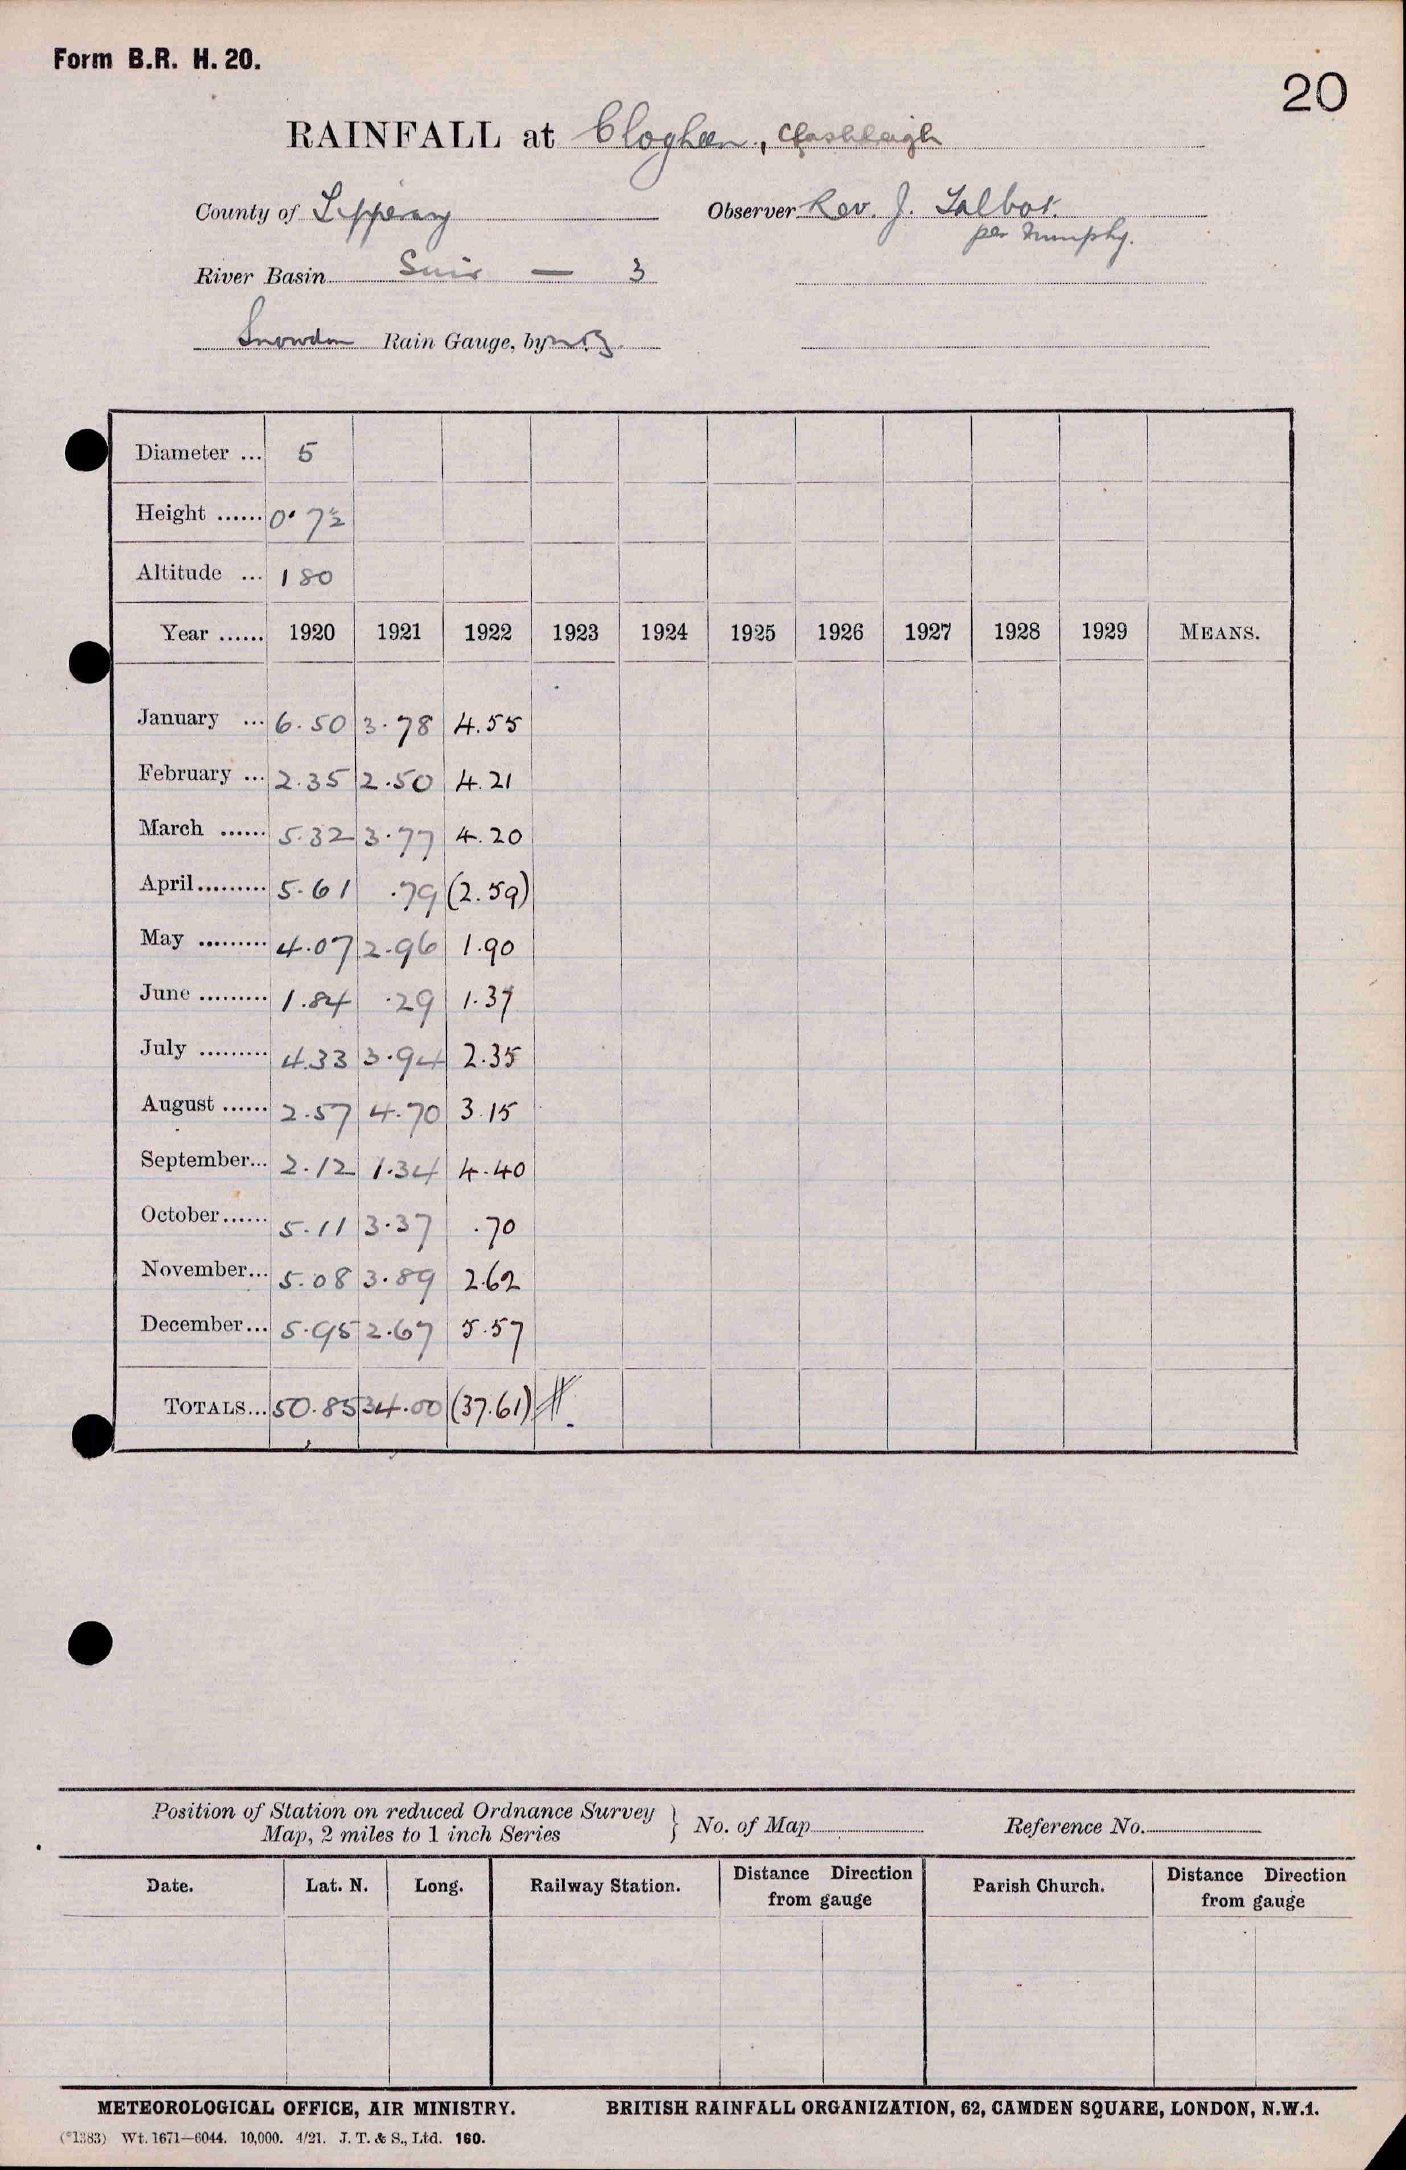 Form B.R. H. 20.
20
RAINFALL at Clogheen, Clashleigh
County of Tipperary Observer Rev. J. Talbot.
per Murphy.
River Basin Suir — 3
Snowdon Rain Gauge, by
Diameter ... 5
Height ...... 0' 7½
Altitude ... 180
Year ...... 1920 1921 1922 1923 1924 1925 1926 1927 1928 1929 MEANS.
January ... 6.50 3.78 4.55
February ... 2.35 2.50 4.21
March ...... 5.32 3.77 4.20
April......... 5.61 .79 (2.59)
May ......... 4.07 2.96 1.90
June ......... 1.84 .29 1.37
July ......... 4.33 3.94 2.35
August ...... 2.57 4.70 3.15
September... 2.12 1.34 4.40
October...... 5.11 3.37 .70
November... 5.08 3.89 2.62
December... 5.95 2.67 5.57
TOTALS... 50.85 34.00 (37.61)
Position of Station on reduced Ordnance Survey
Map, 2 miles to 1 inch Series } No. of Map Reference No.
Date. Lat. N. Long. Railway Station. Distance Direction from gauge Parish Church. Distance Direction from gauge
METEOROLOGICAL OFFICE, AIR MINISTRY. BRITISH RAINFALL ORGANIZATION, 62, CAMDEN SQUARE, LONDON, N.W.1.
(*1383) Wt. 1671—6044. 10,000. 4/21. J. T. & S., Ltd. 160.